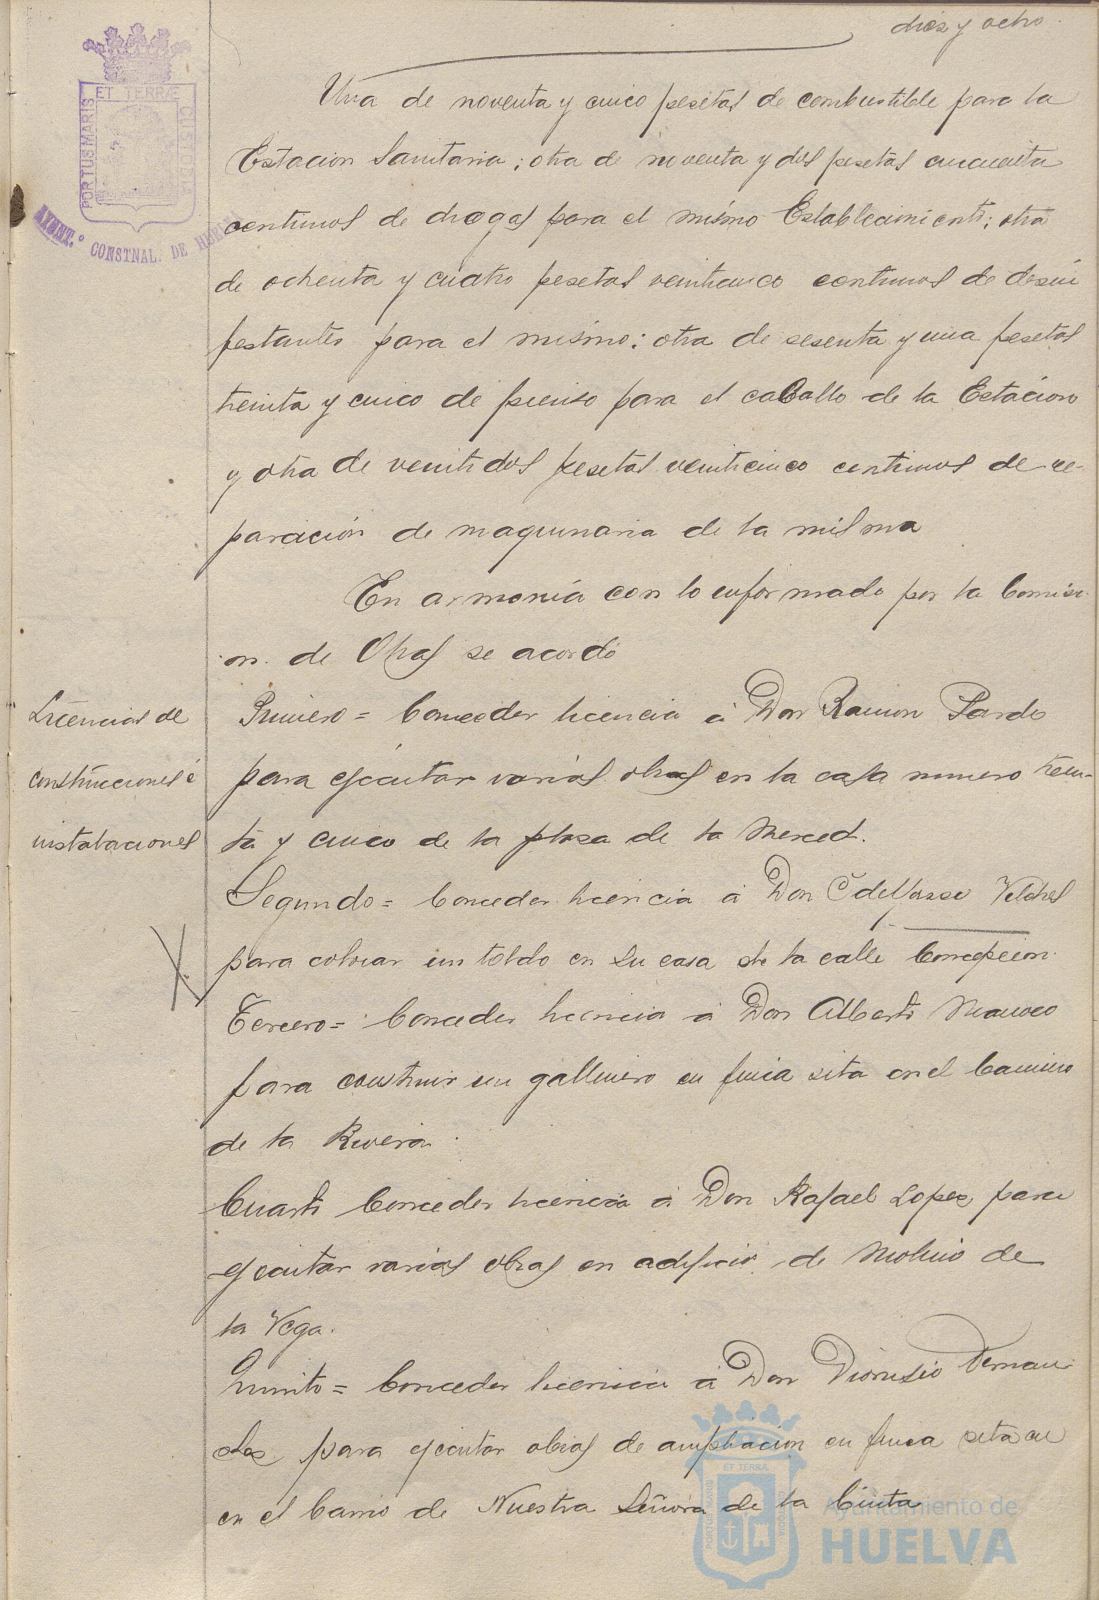 diez y ocho
Una de noventa y cinco pesetas de combustible para la
Estacion Sanitaria; otra de noventa y dos pesetas cincuenta
centimos de drogas para el mismo Establecimiento; otra
de ochenta y cuatro pesetas veinticinco centimos de desin
festantes para el mismo; otra de sesenta y una pesetas
treinta y cinco de pienso para el caballo de la Estacion
y otra de veintidos pesetas veinticinco centimos de re-
paración de maquinaria de la misma
En armonía con lo informado por la Comisi-
on de Obras se acordó
Licencias de
construcciones é
instalaciones
Primero = Conceder licencia á Don Ramon Pardo
para ejecutar varias obras en la casa numero trein-
ta y cinco de la plaza de la Merced.
Segundo = Conceder licencia á Don Vilches
para colocar un toldo en su casa de la calle Concepcion.
Tercero = Conceder licencia á Don Alberto
para construir un gallinero en finca sita en el Camino
de la Rivera.
Cuarto Conceder licencia á Don Rafael Lopez para
ejecutar varias obras en edificio de Molino de
la Vega.
Quinto = Conceder licencia á Don Dionisio Fernan-
dez para ejecutar obras de ampliacion en finca sita en
en el barrio de Nuestra Señora de la Cinta
PORTUS MARIS
ET TERRÆ
CUSTODIA
AYUNT.º CONSTNAL. DE HUELVA
ET TERRA
PORTUS MARIS
CUSTODIA
Ayuntamiento de
HUELVA